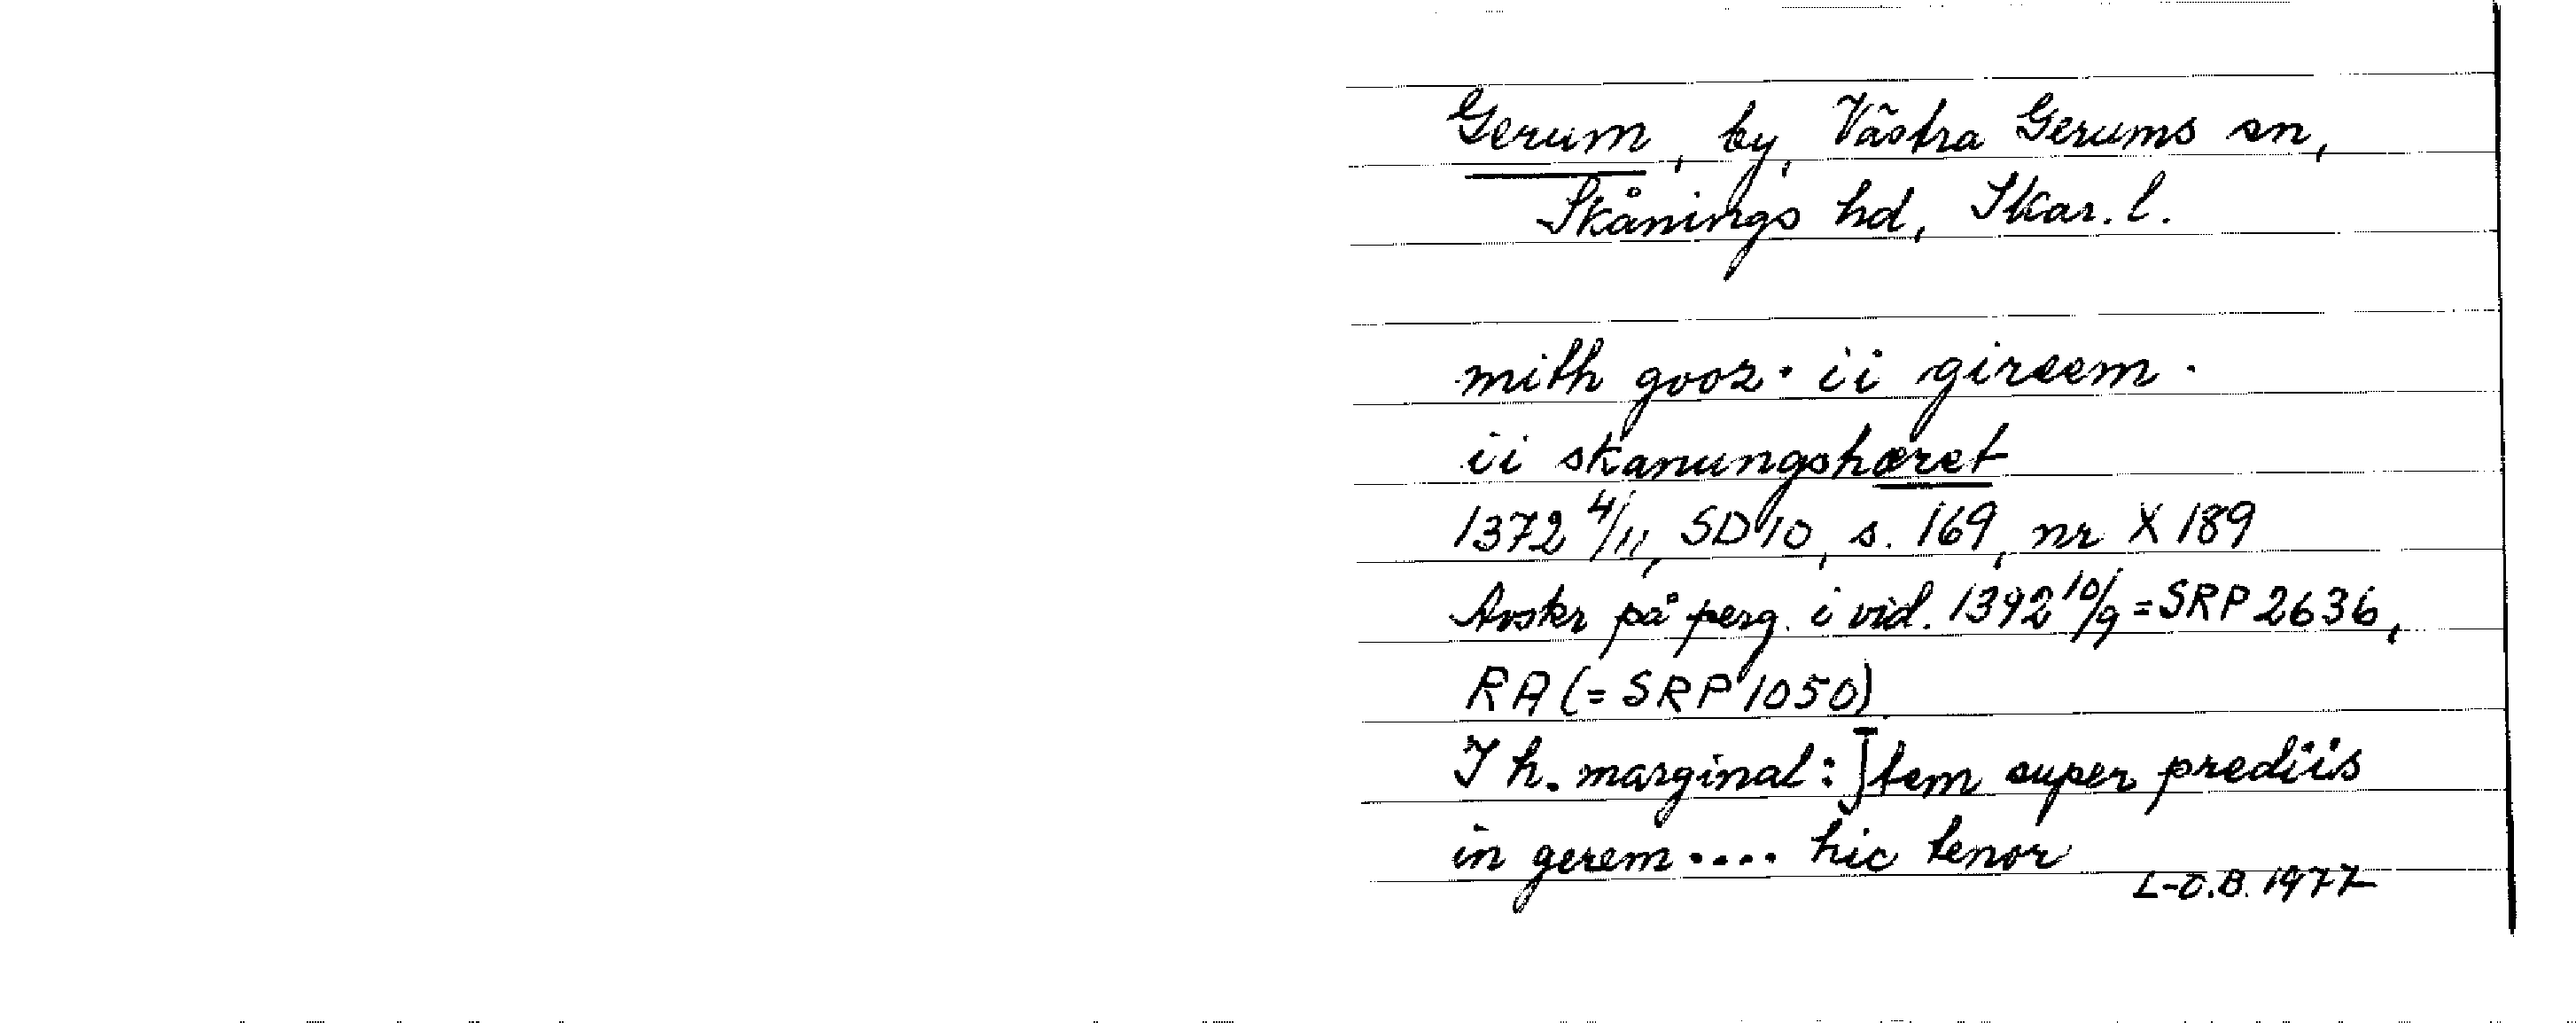 Gerum, by, Västra Gerums sn,
Skånings hd, Skar. l.
mith gooz · ii gireem ·
ii skanungshæret
1372 4/11, SD 10, s. 169, nr X 189
Avskr på perg. i vid. 1392 10/9 = SRP 2636,
RA (= SRP 1050)
I h. marginal: Jtem super prediis
in gerem .... hic tenor
L-O.B. 1977